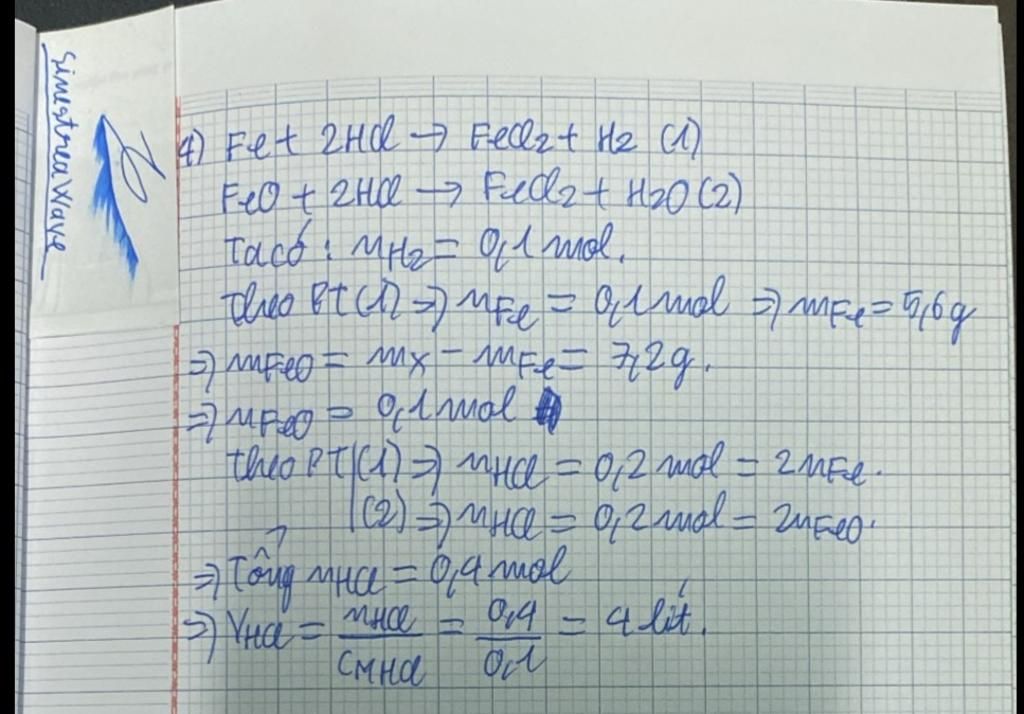 SimestreaWave
4) Fe + 2HCl → FeCl2 + H2 (1)
FeO + 2HCl → FeCl2 + H2O (2)
Ta có : nH2 = 0,1 mol.
theo PT (1) => nFe = 0,1 mol => mFe = 5,6g
=> mFeO = mX - mFe = 7,2g.
=> nFeO = 0,1 mol
theo PT (1) => nHCl = 0,2 mol = 2nFe.
(2) => nHCl = 0,2 mol = 2nFeO.
=> Tổng nHCl = 0,4 mol
=> VHCl = nHCl / CMHCl = 0,4 / 0,1 = 4 lít.